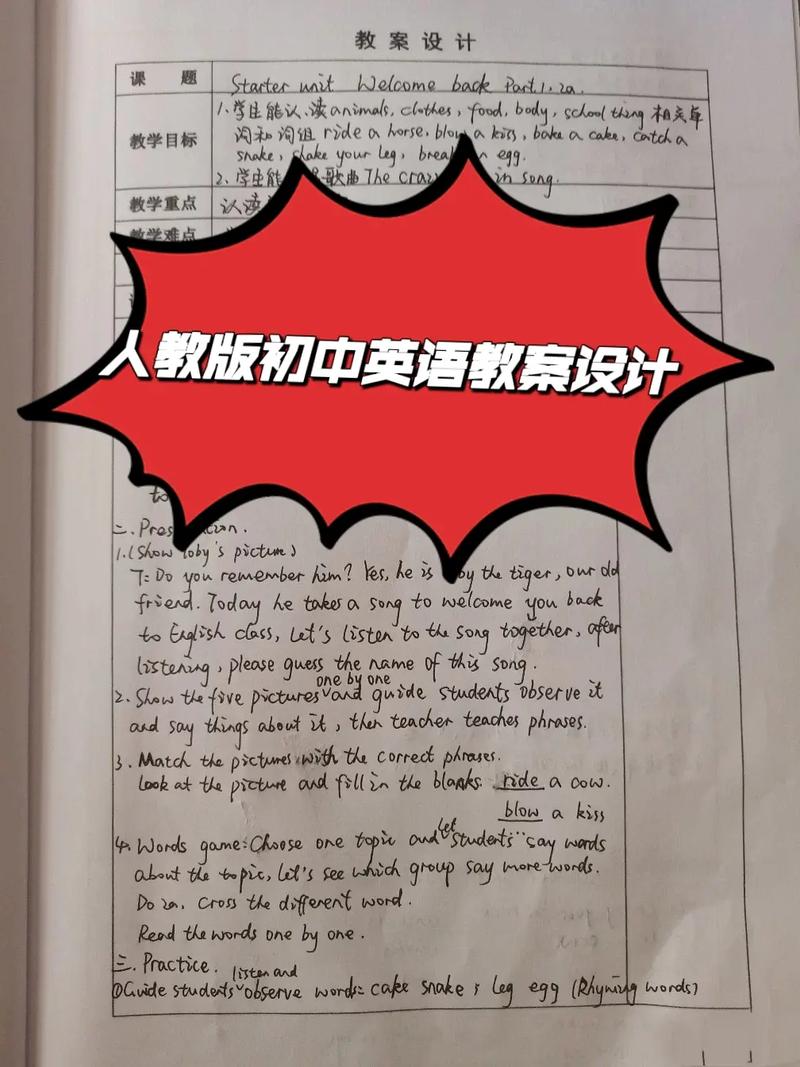 教案设计
课 题 Starter unit Welcome back Part.1.2a.
1.学生能认、读animals, clothes, food, body, school thing 相关单
教学目标 词和词组 ride a horse, blow a kiss, bake a cake, catch a
snake, shake your leg, break an egg.
2、学生能 歌曲The crazy in song.
教学重点 认读
教学难点
人教版初中英语教案设计
to
二、Pres
1.(Show Toby's picture)
T: Do you remember him? Yes, he is Toby the tiger, our old
friend. Today he takes a song to welcome you back
to English class, Let's listen to the song together, after
listening, please guess the name of this song.
one by one
2. Show the five pictures ˅and guide students observe it
and say things about it, then teacher teaches phrases.
3. Match the pictures with the correct phrases.
Look at the picture and fill in the blanks. ride a cow.
blow a kiss
let
4. Words game: Choose one topic and ˅students say words
about the topic, Let's see which group say more words.
Do 2a. Cross the different word.
Read the words one by one.
三. Practice.
listen and
①Guide students ˅observe words: cake snake; leg egg (Rhyming words)